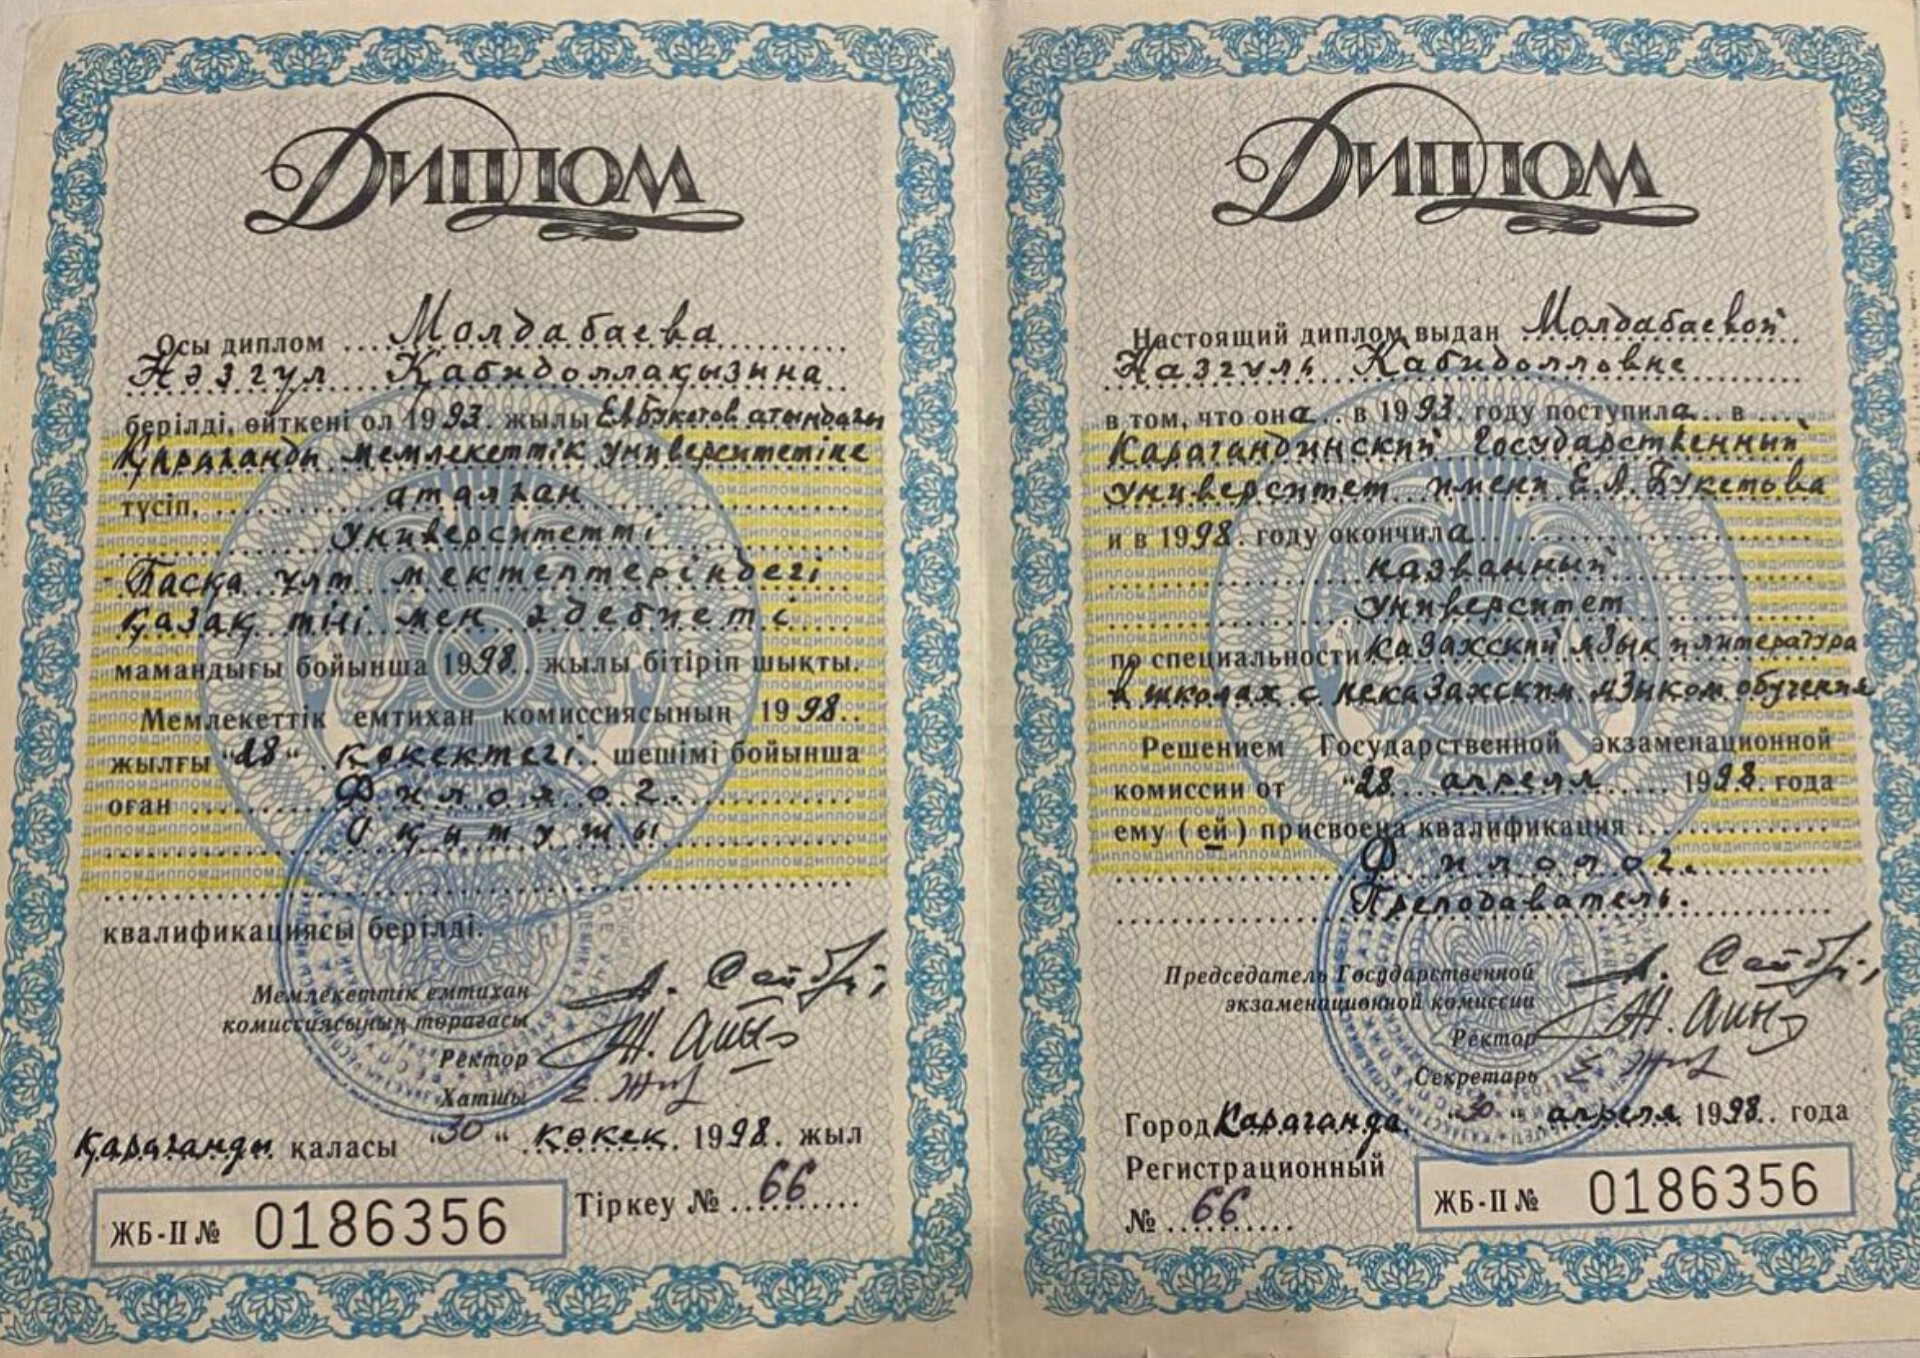 Диплом
Осы диплом Молдабаева
Нәзгүл Қабидоллақызына
берілді, өйткені ол 1993. жылы Е.А.Бөкетов атындағы
Қарағанды мемлекеттік университетіне
түсіп, аталған
университетті
Басқа ұлт мектептеріндегі
қазақ тілі мен әдебиеті
мамандығы бойынша 1998. жылы бітіріп шықты.
Мемлекеттік емтихан комиссиясының 1998.
жылғы "28" көкектегі шешімі бойынша
оған Филолог.
Оқытушы
квалификациясы берілді.
Мемлекеттік емтихан
комиссиясының төрағасы
Ректор
Хатшы
Қарағанды қаласы "30" көкек 1998. жыл
ЖБ-II № 0186356 Тіркеу № 66
Диплом
Настоящий диплом выдан Молдабаевой
Назгуль Кабидолловне
в том, что она в 1993. году поступила в
Карагандинский государственный
университет имени Е.А.Букетова
и в 1998. году окончила
названный
университет
по специальности казахский язык и литература
в школах с неказахским языком обучения
Решением Государственной экзаменационной
комиссии от "28 апреля 1998. года
ему (ей) присвоена квалификация
Филолог.
Преподаватель.
Председатель Государственной
экзаменационной комиссии
Ректор
Секретарь
Город Караганда "30" апреля 1998. года
Регистрационный
№ 66 ЖБ-II № 0186356